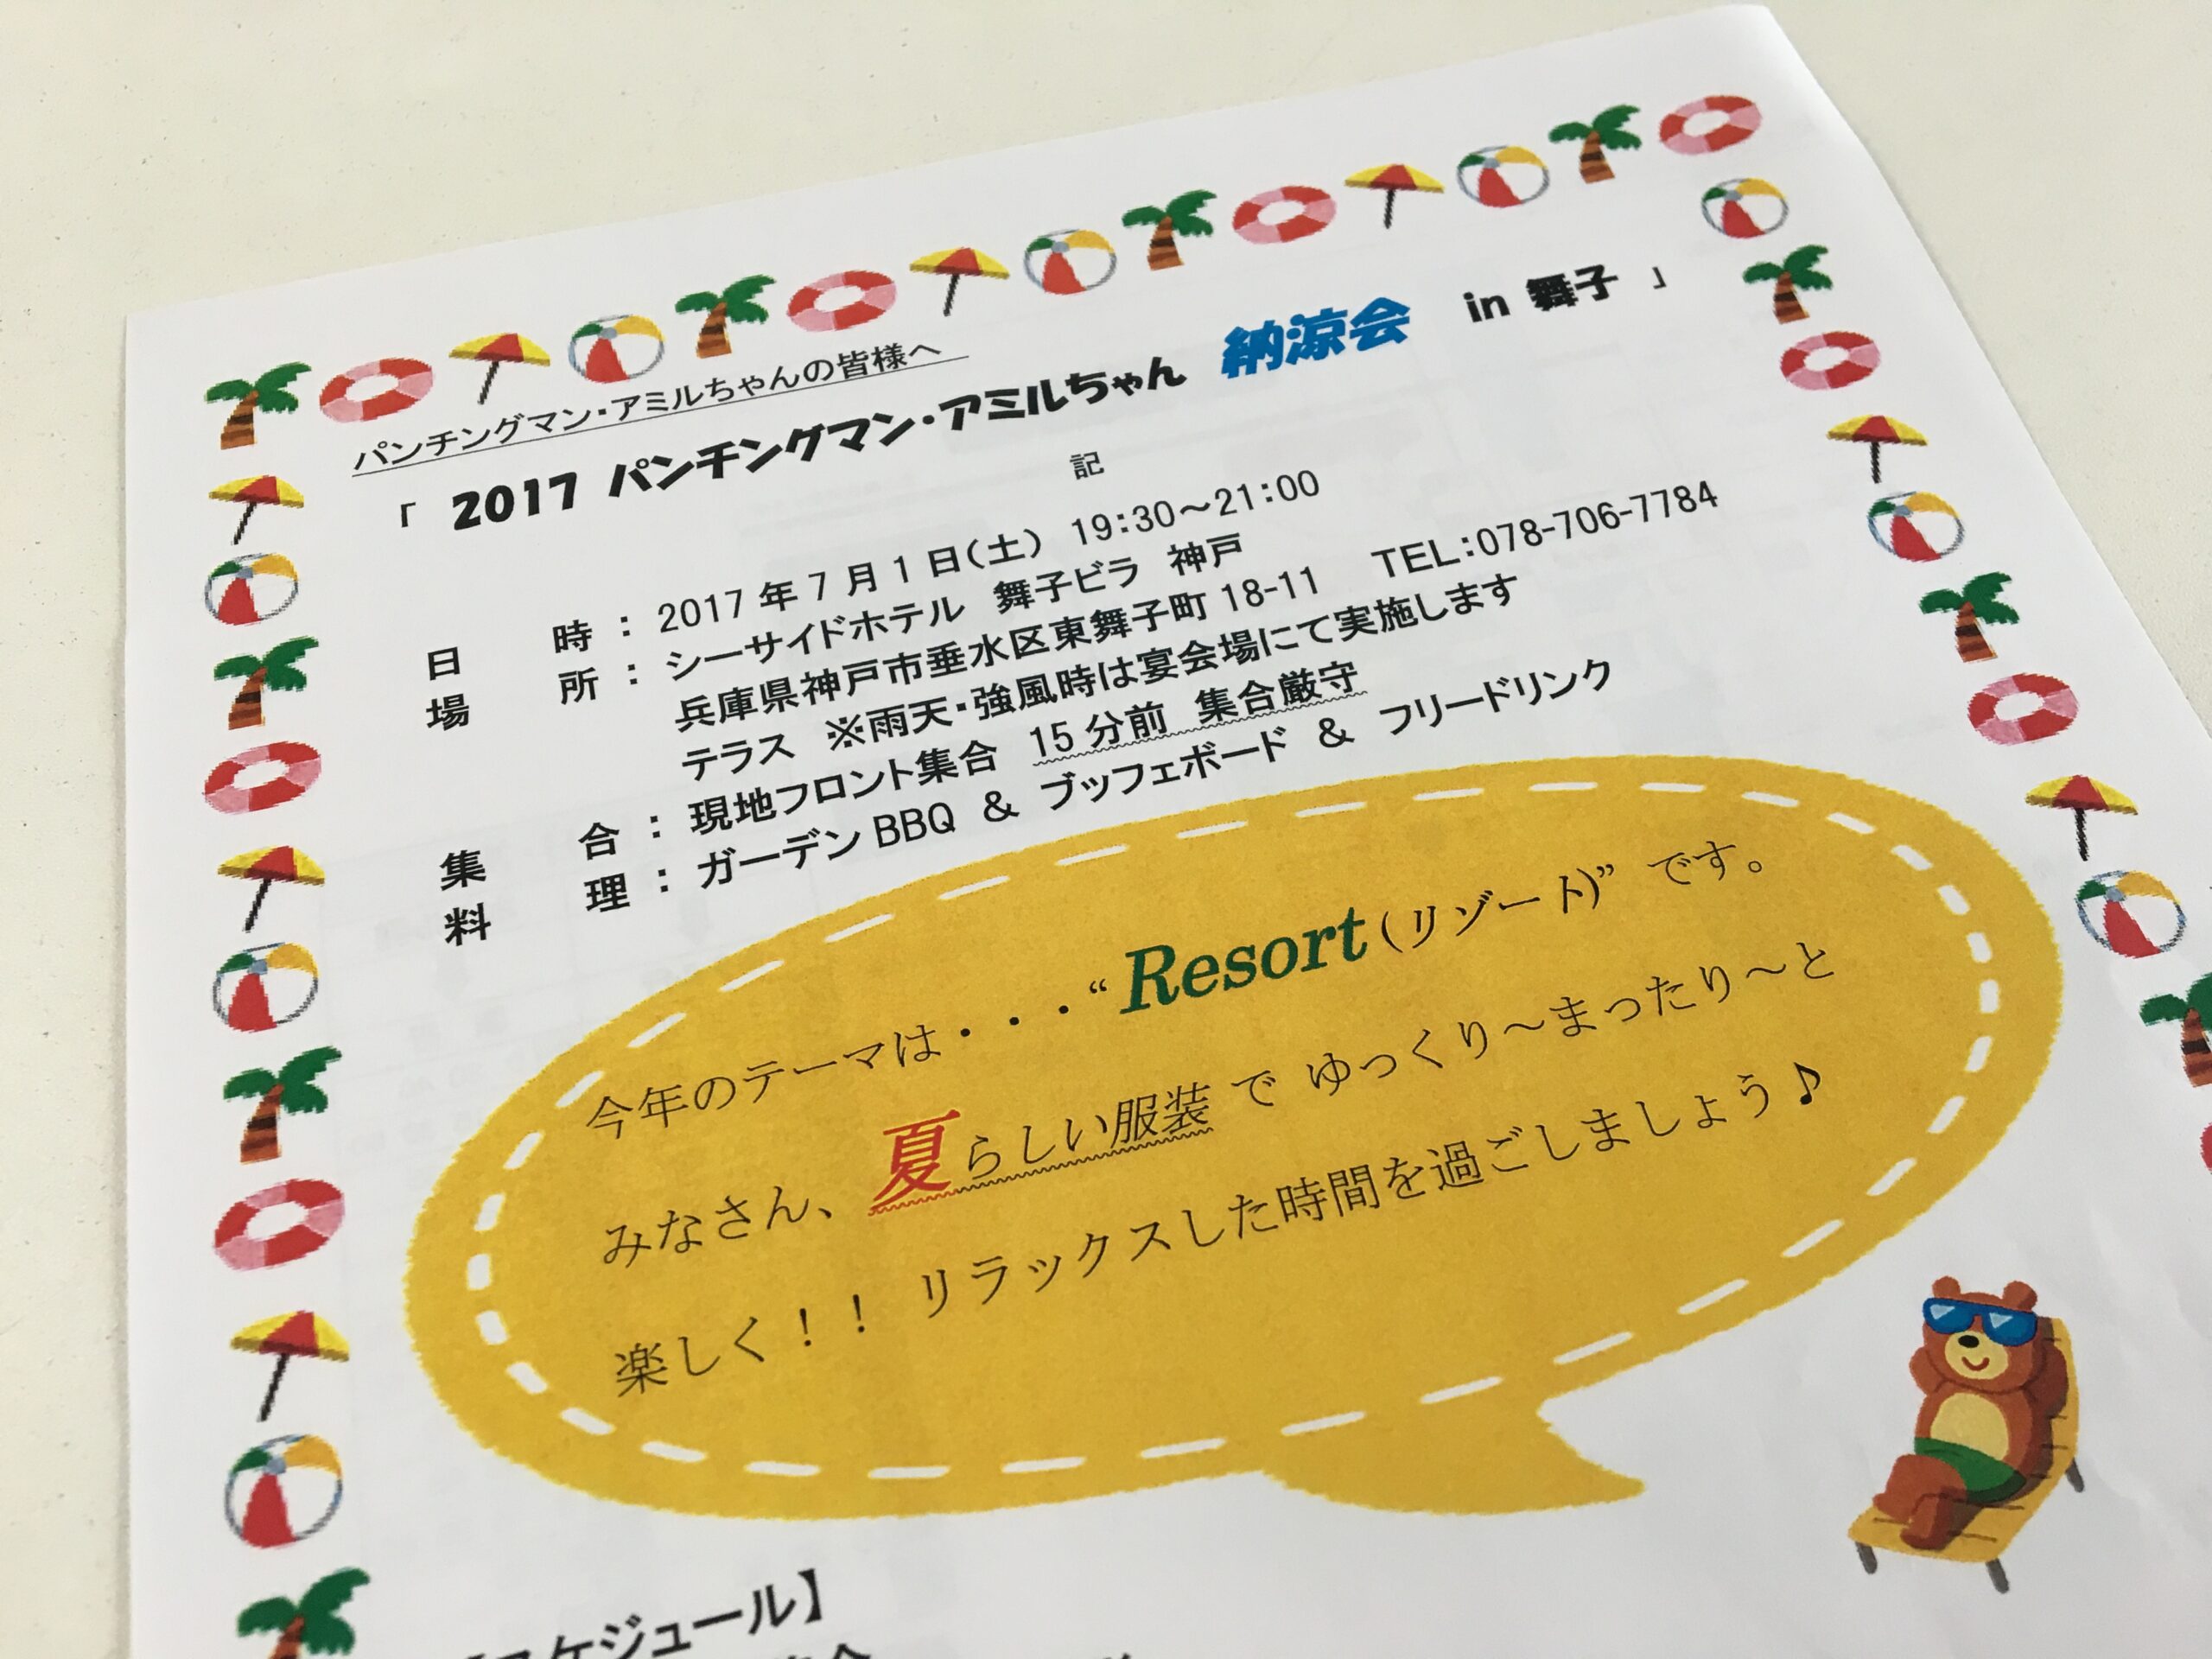 パンチングマン・アミルちゃんの皆様へ
「 2017 パンチングマン・アミルちゃん 納涼会 in 舞子 」
記
日 時 : 2017年7月1日(土) 19:30～21:00
場 所 : シーサイドホテル 舞子ビラ 神戸
兵庫県神戸市垂水区東舞子町18-11 TEL:078-706-7784
テラス ※雨天・強風時は宴会場にて実施します
集 合 : 現地フロント集合 15分前 集合厳守
料 理 : ガーデンBBQ & ブッフェボード & フリードリンク
今年のテーマは・・・“Resort(リゾート)” です。
みなさん、夏らしい服装 で ゆっくり～まったり～と
楽しく！！ リラックスした時間を過ごしましょう♪
スケジュール】